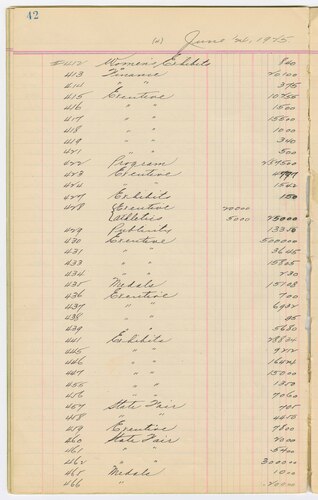 42
(2) June 26, 1925
#412 Women's Exhibits 840
413 Finance 20100
414 " " 375
415 Executive 10755
416 " " 1500
417 " " 15500
418 " " 1000
419 " " 340
421 " " 500
422 Program 237500
423 Executive
424 " " 1562
427 Exhibits 150
428 {Executive 20000
{Athletics 5000 25000
429 Publicity 13356
430 Executive 500000
431 " " 3645
433 " " 15805
434 " " 230
435 Medals 15108
436 Executive 700
437 " " 6932
438 " " 95
439 " " 5680
441 Exhibits 28834
445 " " 9212
446 " "
447 " " 15000
455 " " 1350
456 " " 7060
457 State Fair 705
458 " " 4455
459 Executive 7800
460 State Fair 2000
461 " " 5400
462 " " 300000
465 Medals 1000
466 " " 20000